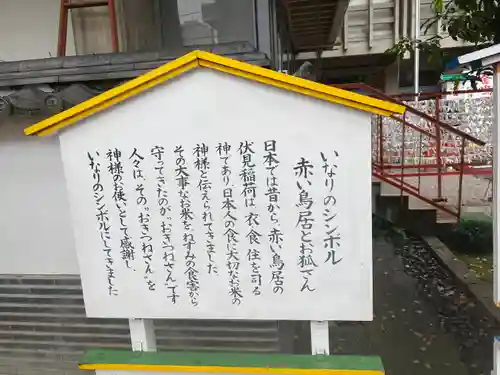 いなりのシンボル
赤い鳥居とお狐さん
日本では昔から、赤い鳥居の
伏見稲荷は、衣、食、住を司る
神であり、日本人の食に大切なお米の
神様と伝えられてきました。
その大事なお米を、ねずみの食害から
守ってきたのが、“おきつねさん”です
人々は、その“おきつねさん”を
神様のお使いとして感謝し、
いなりのシンボルにしてきました